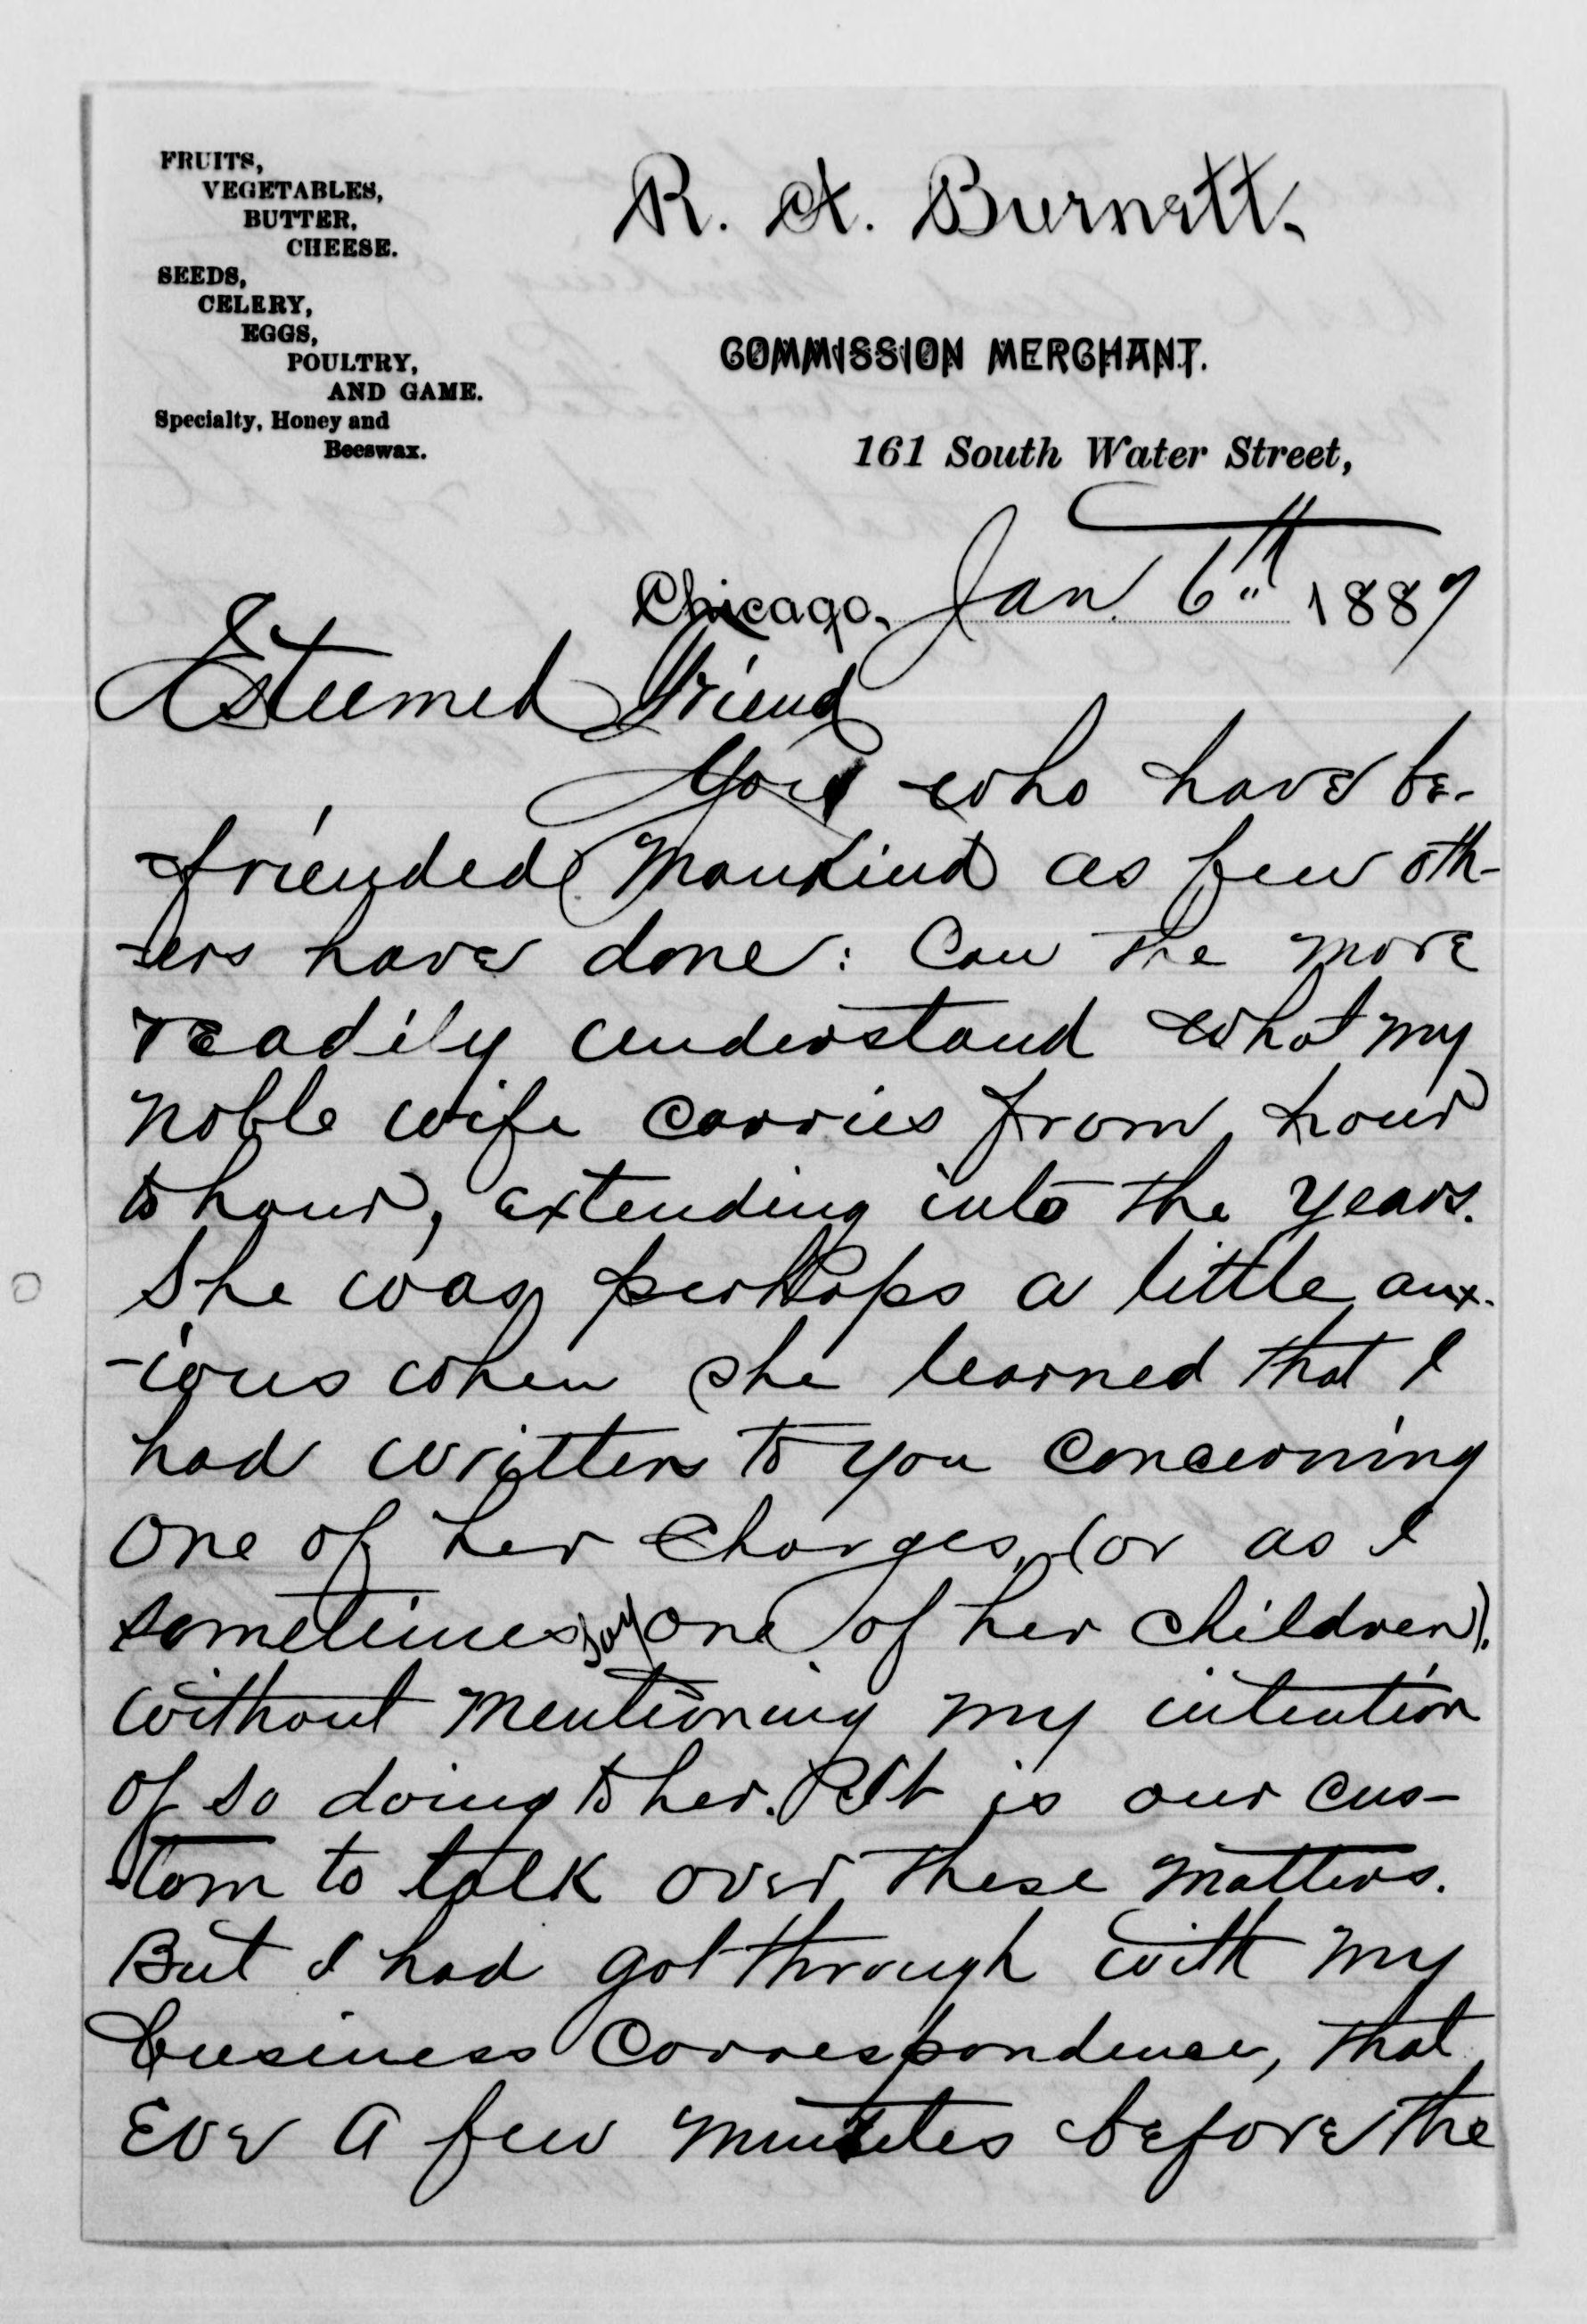 FRUITS,
VEGETABLES,
BUTTER,
CHEESE.
SEEDS,
CELERY,
EGGS,
POULTRY,
AND GAME.
Specialty, Honey and
Beeswax.
R. A. Burnett.
COMMISSION MERCHANT.
161 South Water Street,
Chicago, Jan. 6th 1887
Esteemed Friend
You who have be-
friended Mankind as few oth-
-ers have done: Can the more
readily understand what my
noble wife carries from hour
to hour, extending into the years.
She was perhaps a little anx-
-ious when she learned that I
had written to you concerning
one of her charges, (or as I
sometimes say one of her children).
without mentioning my intention
of so doing to her. It is our cus-
tom to talk over these matters.
But I had got through with my
business correspondence, that
Eve a few minutes before the